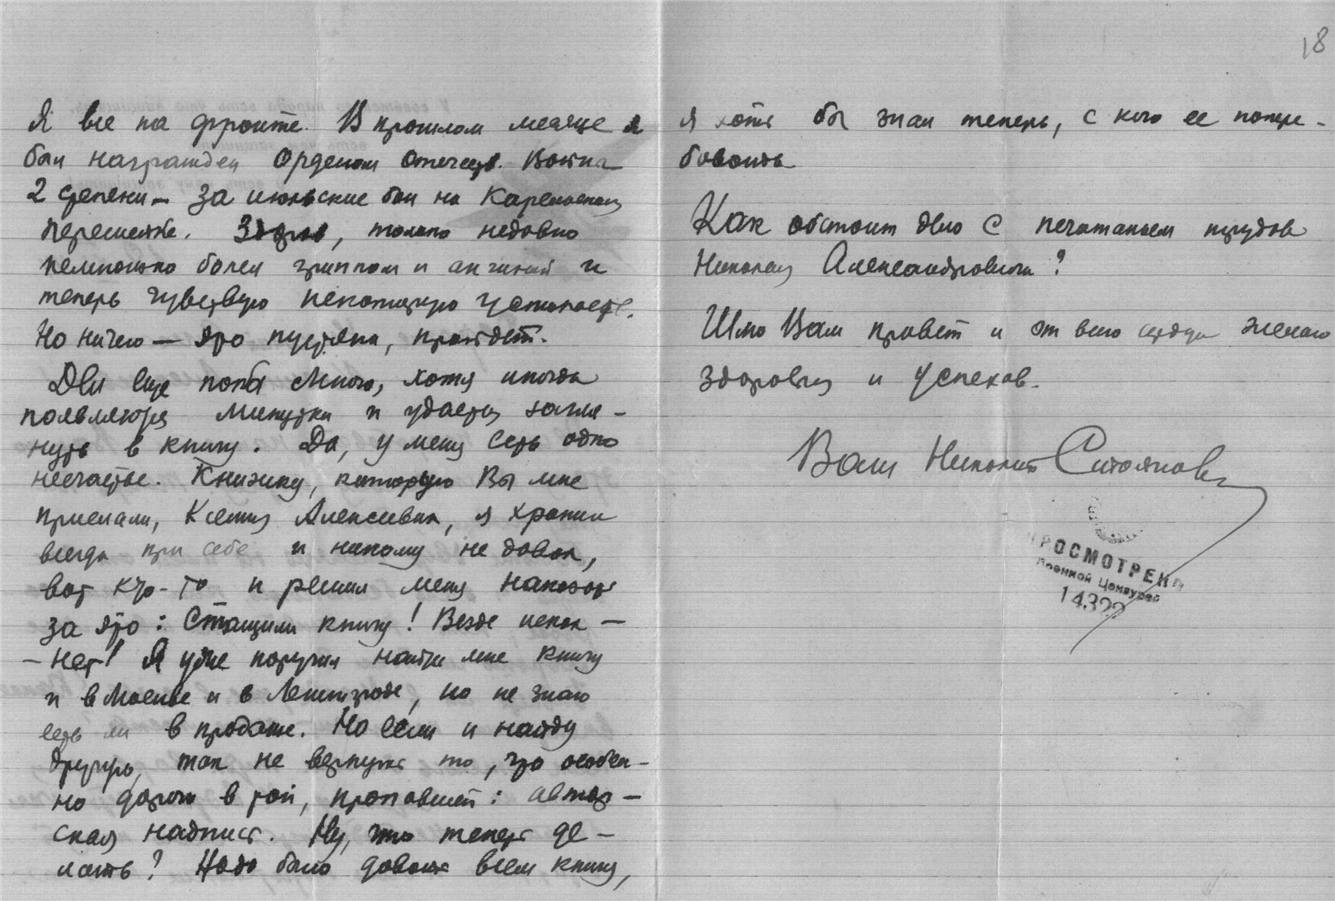 18
Я все на фронте. В прошлом месяце я
был награжден Орденом Отечеств. Война
2 степени — за июльские бои на Карельском
перешейке. Здоров, только недавно
немножко болел гриппом и ангиной и
теперь чувствую некоторую усталость.
Но ничего — это пустяки, пройдет.
Дел еще полно много, хотя иногда
появляются минутки и удается загля-
нуть в книгу. Да, у меня есть одно
несчастье. Книжку, которую Вы мне
прислали, Ксения Алексеевна, я хранил
всегда при себе и никому не давал,
вот кто-то и решил меня наказать
за это: Стащили книгу! Везде искал —
— нет! Я уже поручил найти мне книгу
и в Москве и в Ленинграде, но не знаю
есть ли в продаже. Но если и найду
другую, так не вернуть то, что особен-
но дорого в той, пропавшей: автор-
ская надпись. Ну, что теперь де-
лать? Надо было давать всем книгу,
я хотя бы знал теперь, с кого ее потре-
бовать
Как обстоит дело с печатаньем трудов
Николая Александровича?
Шлю Вам привет и от всего сердца желаю
здоровья и успехов.
Ваш Николай
ПРОСМОТРЕНО
Военной Цензурой
14322